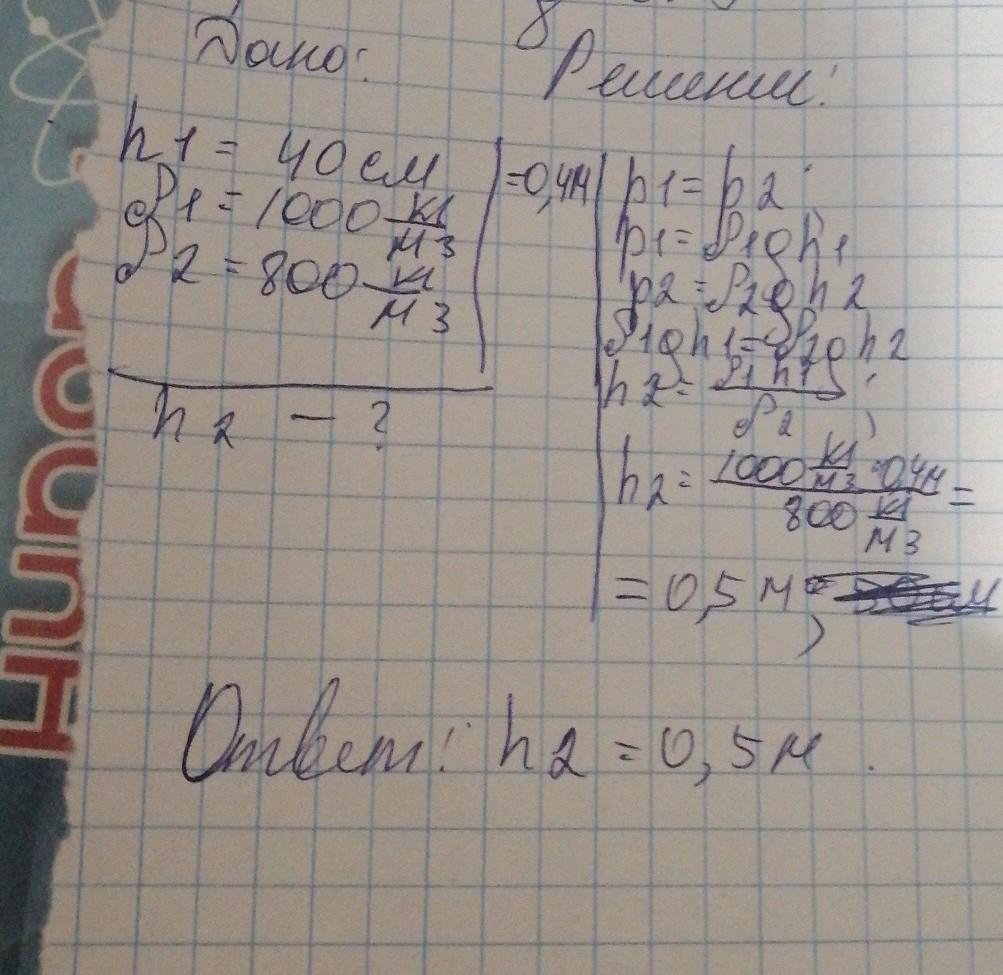 Дано:
h1 = 40 см = 0,4м
ρ1 = 1000 кг/м3
ρ2 = 800 кг/м3
h2 - ?
Решение:
p1 = p2;
p1 = ρ1gh1
p2 = ρ2gh2
ρ1gh1 = ρ2gh2
h2 = ρ1h1/ρ2;
h2 = 1000 кг/м3 · 0,4м / 800 кг/м3 =
= 0,5 м
Ответ: h2 = 0,5м.